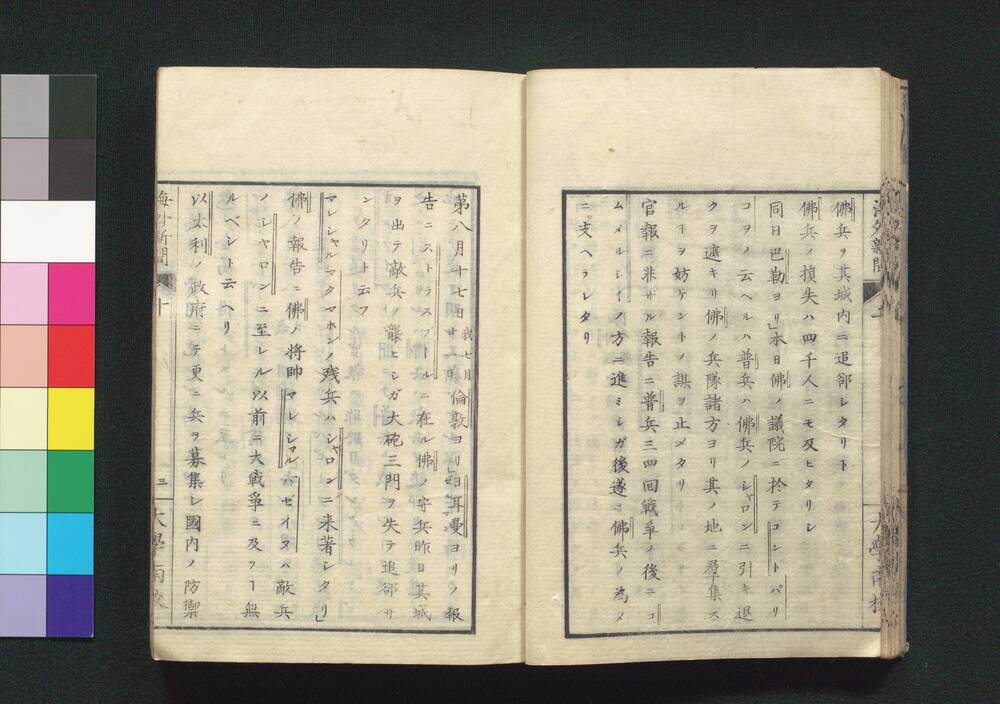 佛兵ヲ其城内ニ追郤シタリト
佛兵ノ損失ハ四千人ニモ及ヒタリシ
同日巴勒ヨリ」本日佛ノ議院ニ於テコントパリ
コヲノ云ヘルハ普兵ハ佛兵ノシャロンニ引キ退
クヲ遮キリ佛ノ兵隊諸方ヨリ其ノ地ニ羣集ス
ルヿヲ妨ケントノ謀ヲ止メタリ
官報ニ非ザル報告ニ普兵三四回戦爭ノ後ニコ
ムメルシイノ方ニ進ミシガ後遂ニ佛兵ノ為メ
ニ支ヘラレタリ
第八月十七日我七月廿一日倫敦ヨリ」日耳曼ヨリノ報
告ニストラスブールニ在ル佛ノ守兵昨日其城
ヲ出テ敵兵ヲ襲ヒシガ大砲三門ヲ失テ追郤サ
ンタリト云フ
マレシャルマクマホンノ残兵ハシャロンニ来著シタリ」
佛ノ報告ニ佛ノ将帥マレシャルバゼイヌハ敵兵
ノシャロンニ至レル以前ニ大戦爭ニ及フヿ無
ルベシト云ヘリ
以太利ノ政府ニテ更ニ兵ヲ募集シ國内ノ防禦
海外新聞 十 三 大學南校